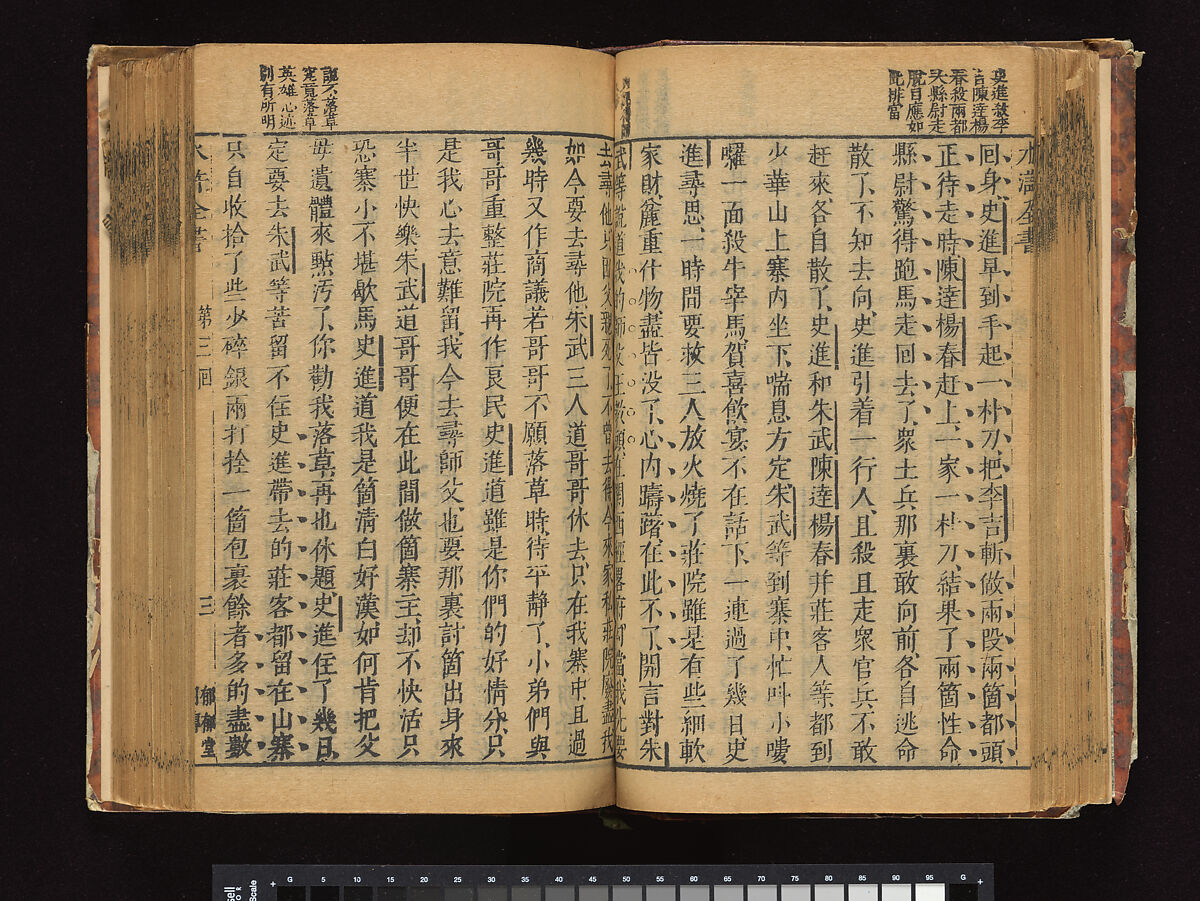 史進殺李
吉陳達楊
春殺兩都
縣尉走
應如
此
水滸全書
回身史進早到手起一朴刀把李吉斬做兩段兩箇都頭
正待走時陳達楊春赶上一家一朴刀結果了兩箇性命
縣尉驚得跑馬走回去了眾土兵那裏敢向前各自逃命
散了不知去向史進引着一行人且殺且走眾官兵不敢
赶來各自散了史進和朱武陳達楊春并莊客人等都到
少華山上寨內坐下喘息方定朱武等到寨中忙叫小嘍
囉一面殺牛宰馬賀喜飲宴不在話下一連過了幾日史
進尋思一時間要救三人放火燒了莊院雖是有些細軟
家財麄重什物盡皆没了心內躊躇在此不了開言對朱
武等說道我的師父王教頭在關西經畧府勾當我先要
去尋他只因父親死了不曾去得今來家私莊院廢盡我
如今要去尋他朱武三人道哥哥休去只在我寨中且過
幾時又作商議若哥哥不願落草時待平靜了小弟們與
哥哥重整莊院再作良民史進道雖是你們的好情分只
是我心去意難留我今去尋師父也要那裏討箇出身來
半世快樂朱武道哥哥便在此間做箇寨主却不快活只
恐寨小不堪歇馬史進道我是箇清白好漢如何肯把父
母遺體來點污了你勸我落草再也休題史進住了幾日
定要去朱武等苦留不住史進帶去的莊客都留在山寨
只自收拾了些少碎銀兩打拴一箇包裹餘者多的盡數
說不落草
究竟落草
英雄心迹
別有所明
水滸全書 第三回 三 郁郁堂
G 5 10 15 20 25 30 35 40 45 50 55 60 65 70 75 80 85 90 95 G
Scale